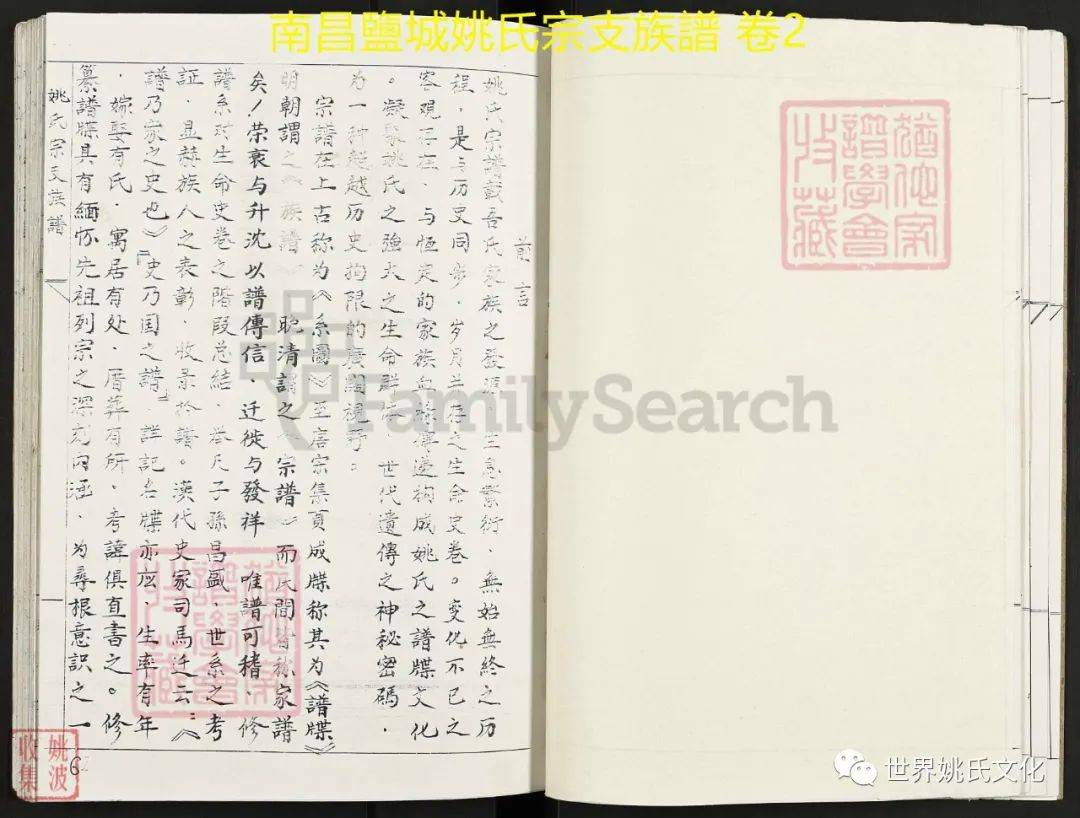 南昌鹽城姚氏宗支族譜 卷2
前言
姚氏宗譜載吾氏家族之發源、生息繁衍、無始無終之历
程，是与历史同步，岁月并存之生命史卷。变化不已之
客观存在，与恒定的家族血缘传递构成姚氏之譜牒文化
。凝聚姚氏之強大之生命群体，世代遺傳之神秘密碼，
为一种超越历史拘限的廣闊視野。
宗譜在上古称为《系圖》至唐宗集頁成牒称其为《譜牒》
明朝謂之《族譜》晚清謂之《宗譜》而民間皆称家譜
矣！荣衰与升沈以譜傳信、迁徙与發祥 唯譜可稽、修
譜系对生命史卷之階段总結、举凡子孫昌盛、世系之考
証、显赫族人之表彰、收录於譜。漢代史家司馬迁云：《
譜乃家之史也》「史乃国之譜」詳記名牒亦应、生率有年
、嫁娶有氏、寓居有处、厝葬有所。考諱俱直書之。修
纂譜牒具有緬怀先祖列宗之深刻内涵、为尋根意識之一
姚氏宗支族譜
6
姚波
收集
FamilySearch
譜學會
收藏
世界姚氏文化